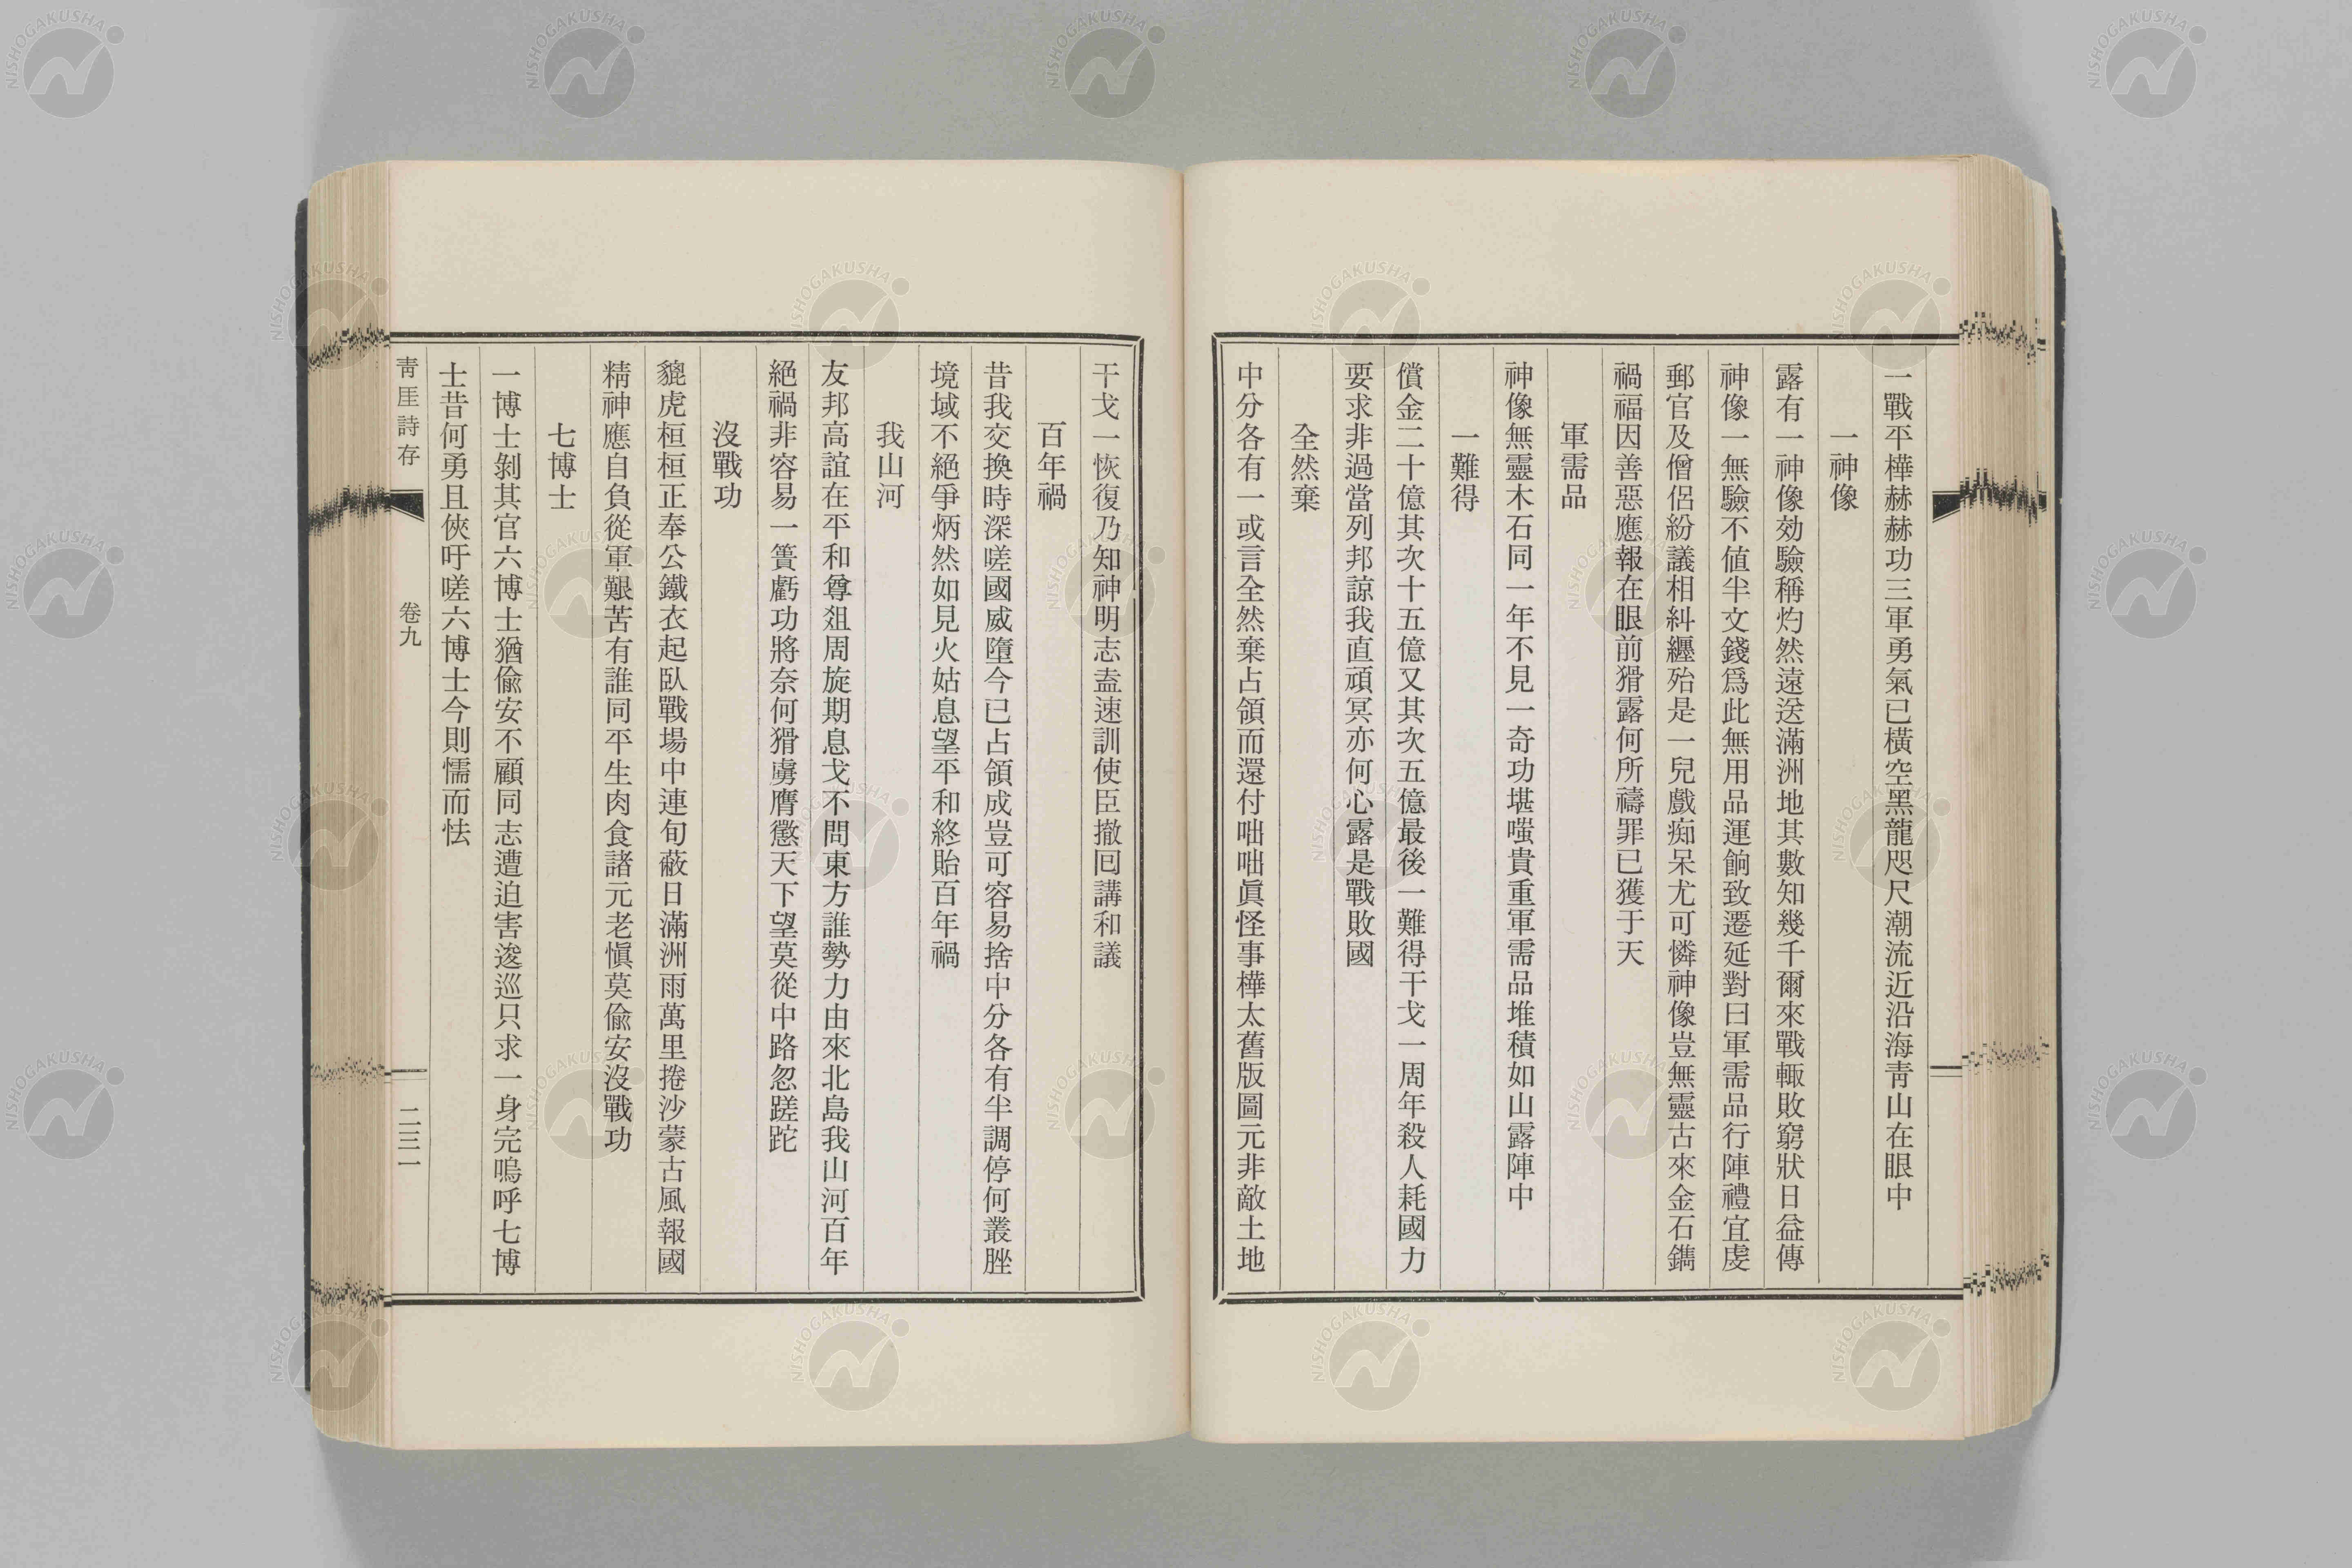 一戰平樺赫赫功三軍勇氣已橫空黑龍咫尺潮流近沿海靑山在眼中
一神像
露有一神像効驗稱灼然遠送滿洲地其數知幾千爾來戰輙敗窮狀日益傳
神像一無驗不値半文錢爲此無用品運餉致遷延對曰軍需品行陣禮宜虔
郵官及僧侶紛議相糾纒殆是一兒戲痴呆尤可憐神像豈無靈古來金石鐫
禍福因善惡應報在眼前猾露何所禱罪已獲于天
軍需品
神像無靈木石同一年不見一奇功堪嗤貴重軍需品堆積如山露陣中
一難得
償金二十億其次十五億又其次五億最後一難得干戈一周年殺人耗國力
要求非過當列邦諒我直頑冥亦何心露是戰敗國
全然棄
中分各有一或言全然棄占領而還付咄咄眞怪事樺太舊版圖元非敵土地
干戈一恢復乃知神明志盍速訓使臣撤回講和議
百年禍
昔我交換時深嗟國威墮今已占領成豈可容易捨中分各有半調停何叢脞
境域不絕爭炳然如見火姑息望平和終貽百年禍
我山河
友邦高誼在平和尊爼周旋期息戈不問東方誰勢力由來北島我山河百年
絕禍非容易一簣虧功將奈何猾虜膺懲天下望莫從中路忽蹉跎
沒戰功
貔虎桓桓正奉公鐵衣起臥戰場中連旬蔽日滿洲雨萬里捲沙蒙古風報國
精神應自負從軍艱苦有誰同平生肉食諸元老愼莫偸安沒戰功
七博士
一博士剝其官六博士猶偸安不顧同志遭迫害逡巡只求一身完嗚呼七博
士昔何勇且俠吁嗟六博士今則懦而怯
靑厓詩存 卷九 二三一
NISHOGAKUSHA